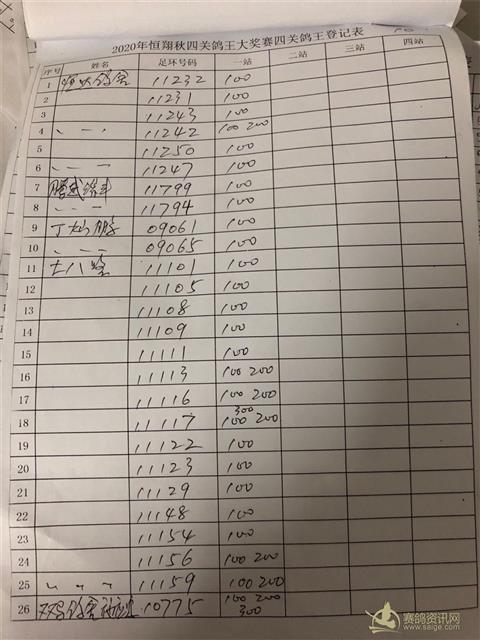 2020年恒翔秋四关鸽王大奖赛四关鸽王登记表
序号 姓名 足环号码 一站 二站 三站 四站
1 11232 100
2 11231 100
3 11243 100
4 11242 100 200
5 11250 100
6 11247 100
7 11799 100
8 11794 100
9 09061 100
10 09065 100
11 11101 100
12 11105 100
13 11108 100
14 11109 100
15 11111 100
16 11113 100 200
17 11116 100 200
300
18 11117 100 200
19 11122 100
20 11123 100
21 11129 100
22 11148 100
23 11154 100
24 11156 100 200
25 11159 100 200
26 10775 100 200
300
赛鸽资讯网
www.saige.com